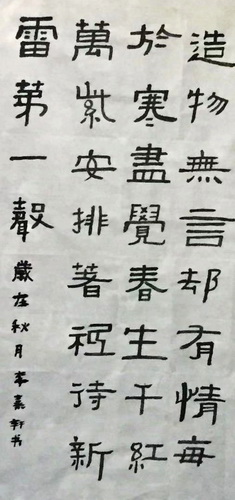 造物無言却有情每
於寒盡覺春生千紅
萬紫安排著祗待新
雷第一聲
歲在秋月李嘉轩书